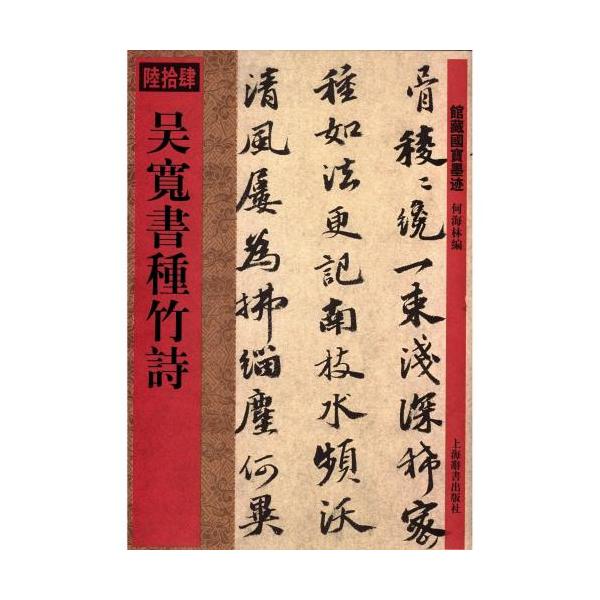 館藏國寶墨迹
何海林編
上海辭書出版社
骨稜〻繞一束淺深栽密
種如法更記南枝水頻沃
清風屢為拂緇塵何異
陸拾肆
吴寬書種竹詩